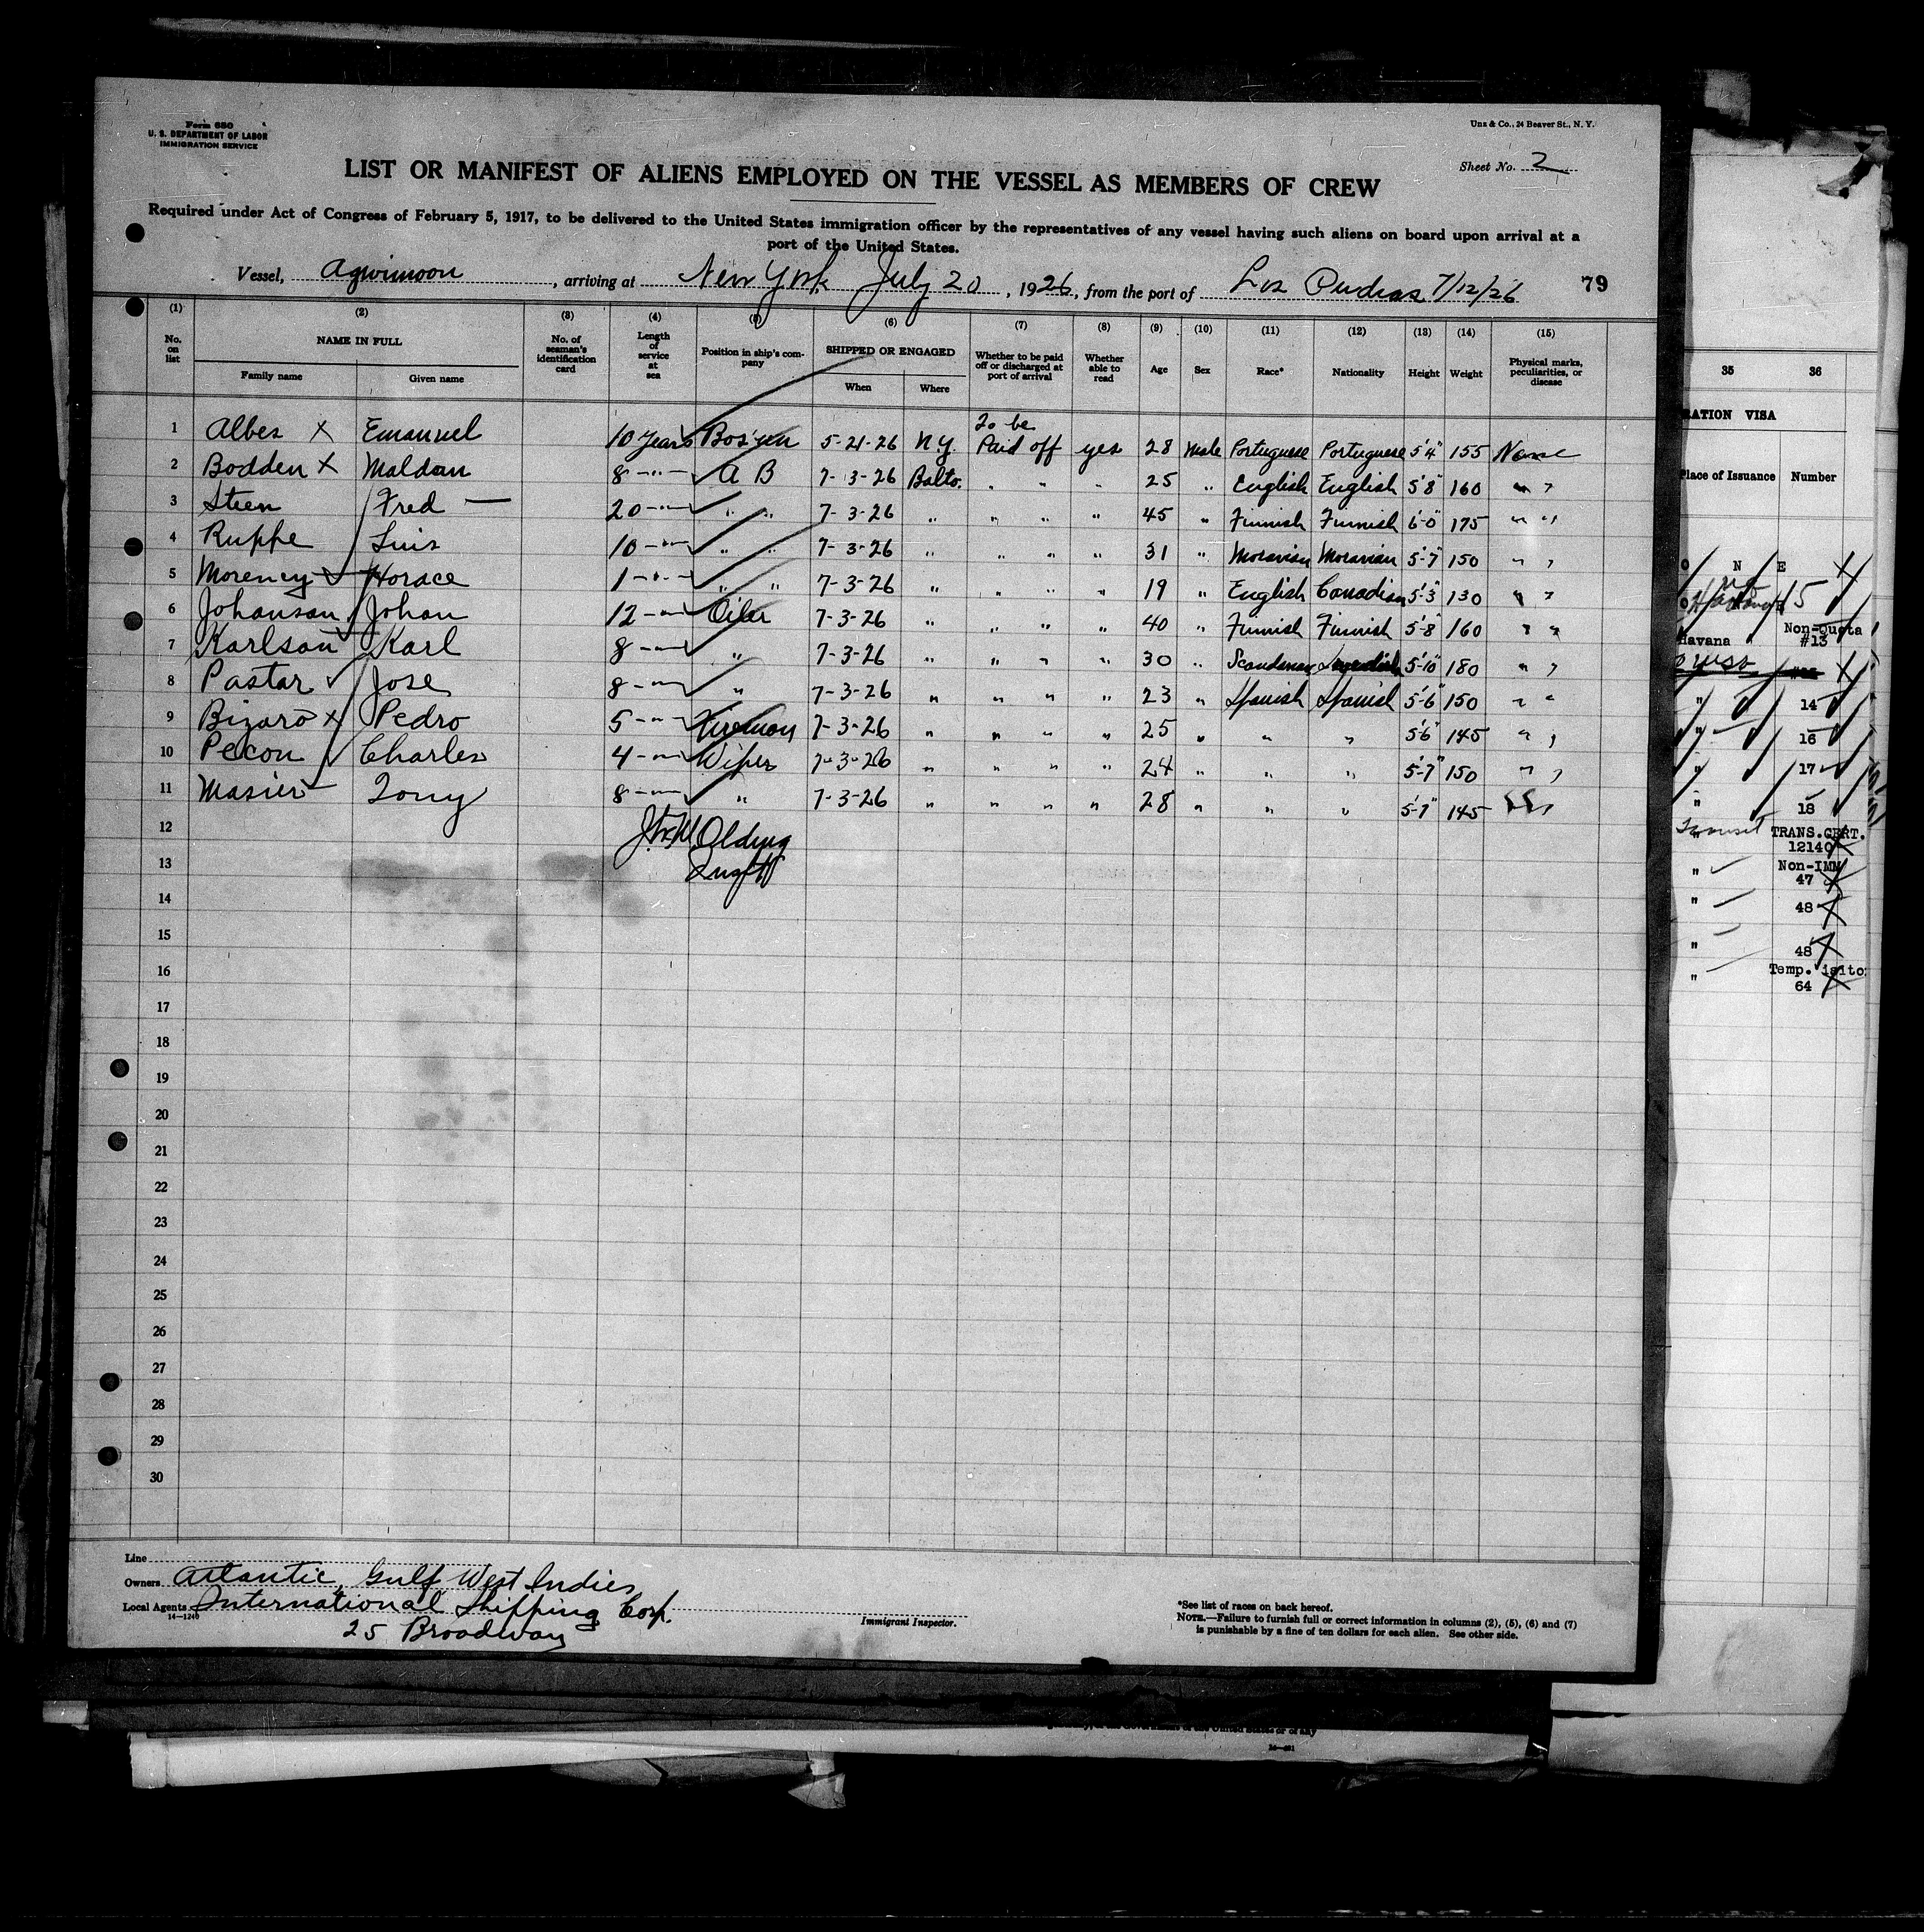 Form 680
U. S. DEPARTMENT OF LABOR
IMMIGRATION SERVICE
Unz & Co., 24 Beaver St., N. Y.
Sheet No. 2
LIST OR MANIFEST OF ALIENS EMPLOYED ON THE VESSEL AS MEMBERS OF CREW
Required under Act of Congress of February 5, 1917, to be delivered to the United States immigration officer by the representatives of any vessel having such aliens on board upon arrival at a
port of the United States.
Vessel, Agwimoon, arriving at New York July 20, 1926, from the port of Los 7/12/26 79
(1) (2) (3) (4) (5) (6) (7) (8) (9) (10) (11) (12) (13) (14) (15)
No. on list NAME IN FULL Family name Given name No. of seaman's identification card Length of service at sea Position in ship's company SHIPPED OR ENGAGED When Where Whether to be paid off or discharged at port of arrival Whether able to read Age Sex Race* Nationality Height Weight Physical marks, peculiarities, or disease
1 Albes X Emanuel 10 years Bos'un 5-21-26 N.Y. To be Paid off yes 28 Male Portuguese Portuguese 5'4" 155 None
2 Bodden X Maldon 8 -"- A B 7-3-26 Balto. " " " 25 " English English 5'8" 160 " "
3 Steen Fred 20 -"- " " 7-3-26 " " " " 45 " Finnish Finnish 6-0" 175 " "
4 Ruppe Luis 10 -"- " " 7-3-26 " " " " 31 " Moravian Moravian 5-7" 150 " "
5 Morency Horace 1 -"- " " 7-3-26 " " " " 19 " English Canadian 5-3" 130 " "
6 Johanson Johan 12 -"- Oiler 7-3-26 " " " " 40 " Finnish Finnish 5-8" 160 " "
7 Karlson Karl 8 -"- " 7-3-26 " " " " 30 " Swedish 5-10" 180 " "
8 Pastar Jose 8 -"- " 7-3-26 " " " " 23 " Spanish Spanish 5-6" 150 " "
9 Bizaro X Pedro 5 -"- Fireman 7-3-26 " " " " 25 " " " 5'6" 145 " "
10 Pecon Charles 4 -"- Wiper 7-3-26 " " " " 24 " " " 5-7" 150 " "
11 Masier Tony 8 -"- " 7-3-26 " " " " 28 " " " 5-7" 145
12 Olding
13
14
15
16
17
18
19
20
21
22
23
24
25
26
27
28
29
30
Line
Owners Atlantic, Gulf West Indies
Local Agents International Shipping Corp.
14—1240
25 Broadway
Immigrant Inspector.
*See list of races on back hereof.
NOTE.—Failure to furnish full or correct information in columns (2), (5), (6) and (7)
is punishable by a fine of ten dollars for each alien. See other side.
35 36
RATION VISA
Place of Issuance Number
O N E
15
Havana Non-Quota #13
" 14
" 16
" 17
" 18
Transit TRANS.CERT.
" 12140
" Non-IMM
47
" 48
" 48
" Temp.
64